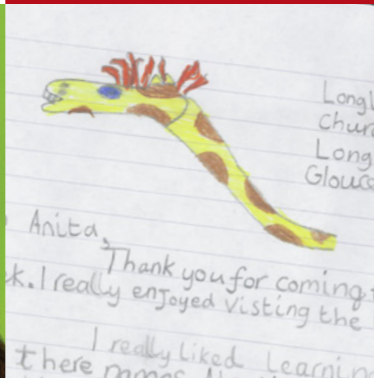 Long
Chur
Long
Glouc
Anita,
Thank you for coming
k. I really enjoyed Visting the
I really liked Learnin
there names